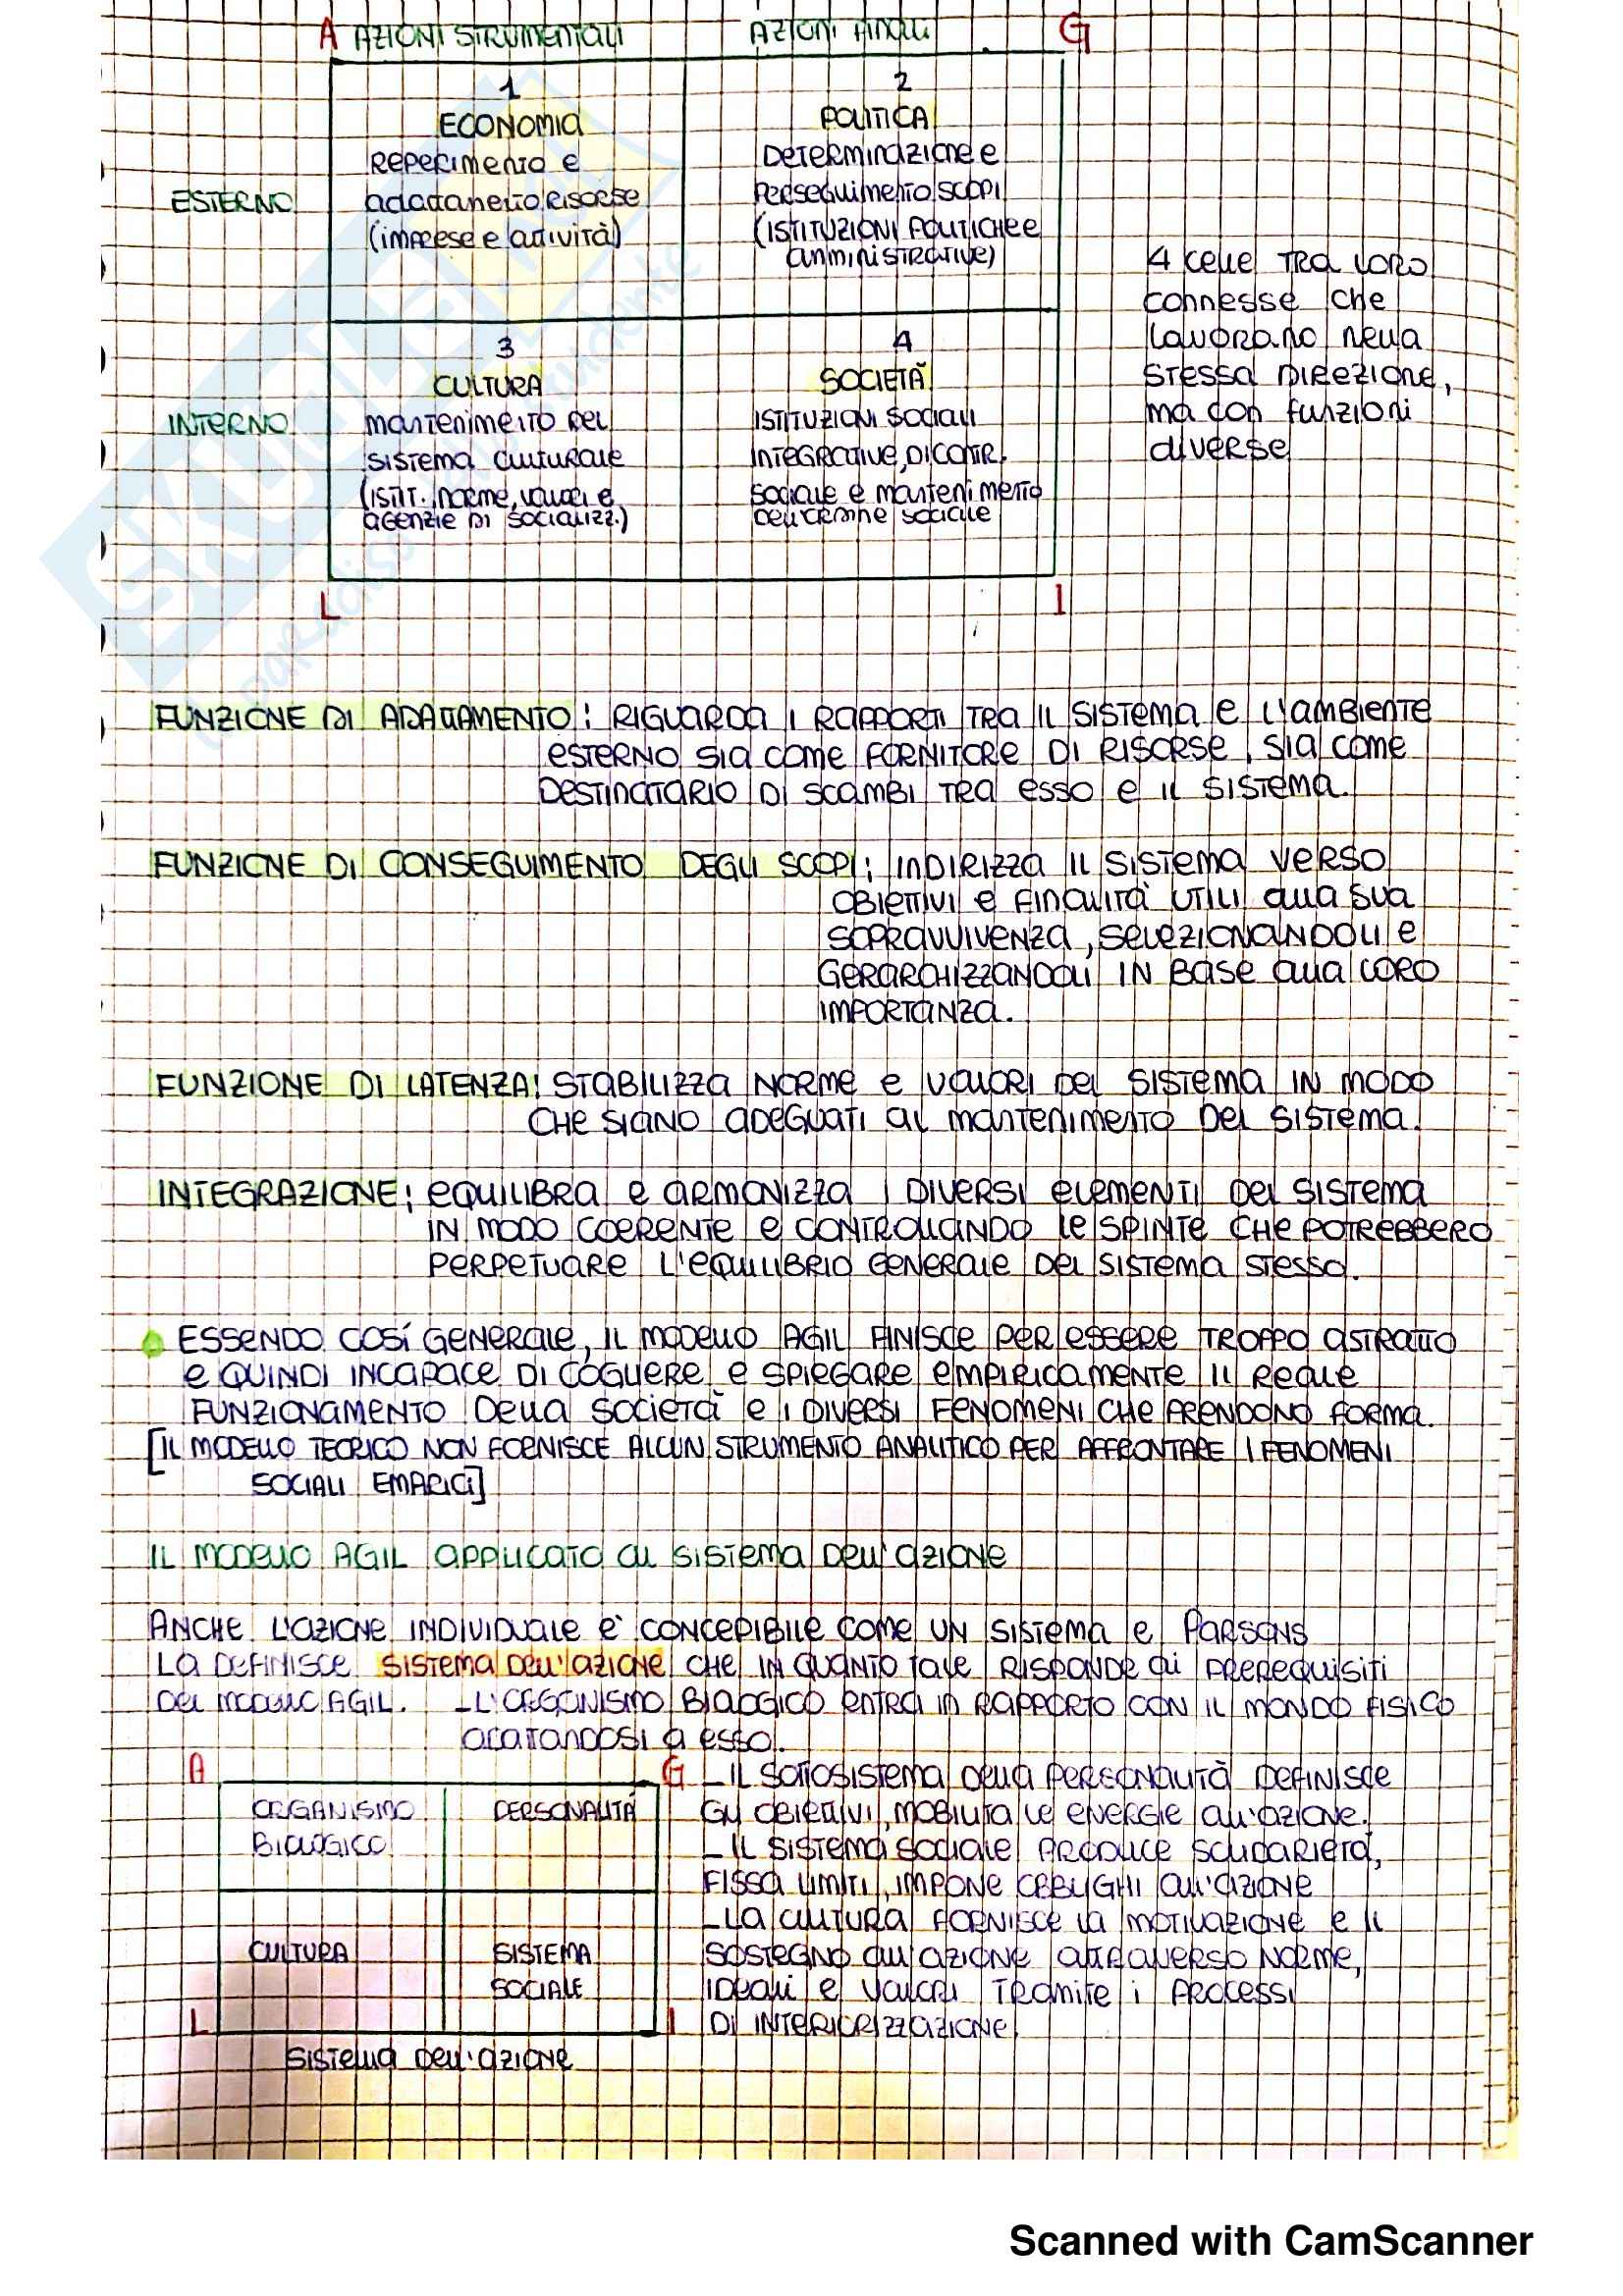 A AZIONI STRUMENTALI AZIONI FINALI G
1
ECONOMIA
REPERIMENTO E
ADATTAMENTO RISORSE
(IMPRESE E ATTIVITÀ)
2
POLITICA
DETERMINAZIONE E
PERSEGUIMENTO SCOPI
(ISTITUZIONI POLITICHE E
AMMINISTRATIVE)
ESTERNO
3
CULTURA
MANTENIMENTO DEL
SISTEMA CULTURALE
(ISTIT. NORME, VALORI E
AGENZIE DI SOCIALIZZ.)
4
SOCIETÀ
ISTITUZIONI SOCIALI
INTEGRATIVE, DI CONTR.
SOCIALE E MANTENIMENTO
DELL'ORDINE SOCIALE
INTERNO
L I
4 CELLE TRA LORO
CONNESSE CHE
LAVORANO NELLA
STESSA DIREZIONE,
MA CON FUNZIONI
DIVERSE
FUNZIONE DI ADATTAMENTO: RIGUARDA I RAPPORTI TRA IL SISTEMA E L'AMBIENTE
ESTERNO SIA COME FORNITORE DI RISORSE, SIA COME
DESTINATARIO DI SCAMBI TRA ESSO E IL SISTEMA.
FUNZIONE DI CONSEGUIMENTO DEGLI SCOPI: INDIRIZZA IL SISTEMA VERSO
OBIETTIVI E FINALITÀ UTILI ALLA SUA
SOPRAVVIVENZA, SELEZIONANDOLI E
GERARCHIZZANDOLI IN BASE ALLA LORO
IMPORTANZA.
FUNZIONE DI LATENZA: STABILIZZA NORME E VALORI DEL SISTEMA IN MODO
CHE SIANO ADEGUATI AL MANTENIMENTO DEL SISTEMA.
INTEGRAZIONE: EQUILIBRA E ARMONIZZA I DIVERSI ELEMENTI DEL SISTEMA
IN MODO COERENTE E CONTROLLANDO LE SPINTE CHE POTREBBERO
PERPETUARE L'EQUILIBRIO GENERALE DEL SISTEMA STESSO.
ESSENDO COSÍ GENERALE, IL MODELLO AGIL FINISCE PER ESSERE TROPPO ASTRATTO
E QUINDI INCAPACE DI COGLIERE E SPIEGARE EMPIRICAMENTE IL REALE
FUNZIONAMENTO DELLA SOCIETÀ E I DIVERSI FENOMENI CHE PRENDONO FORMA.
[IL MODELLO TEORICO NON FORNISCE ALCUN STRUMENTO ANALITICO PER AFFRONTARE I FENOMENI
SOCIALI EMPIRICI]
IL MODELLO AGIL APPLICATO AL SISTEMA DELL'AZIONE
ANCHE L'AZIONE INDIVIDUALE È CONCEPIBILE COME UN SISTEMA E PARSONS
LA DEFINISCE SISTEMA DELL'AZIONE CHE IN QUANTO TALE RISPONDE AI PREREQUISITI
DEL MODELLO AGIL. - L'ORGANISMO BIOLOGICO ENTRA IN RAPPORTO CON IL MONDO FISICO
ADATTANDOSI A ESSO.
- IL SOTTOSISTEMA DELLA PERSONALITÀ DEFINISCE
GLI OBIETTIVI, MOBILITA LE ENERGIE ALL'AZIONE.
- IL SISTEMA SOCIALE PRODUCE SOLIDARIETÀ,
FISSA LIMITI, IMPONE OBBLIGHI ALL'AZIONE
- LA CULTURA FORNISCE LA MOTIVAZIONE E IL
SOSTEGNO ALL'AZIONE ATTRAVERSO NORME,
IDEALI E VALORI TRAMITE I PROCESSI
DI INTERIORIZZAZIONE
A G
ORGANISMO
BIOLOGICO
PERSONALITÀ
CULTURA
SISTEMA
SOCIALE
L I
SISTEMA DELL'AZIONE
Scanned with CamScanner